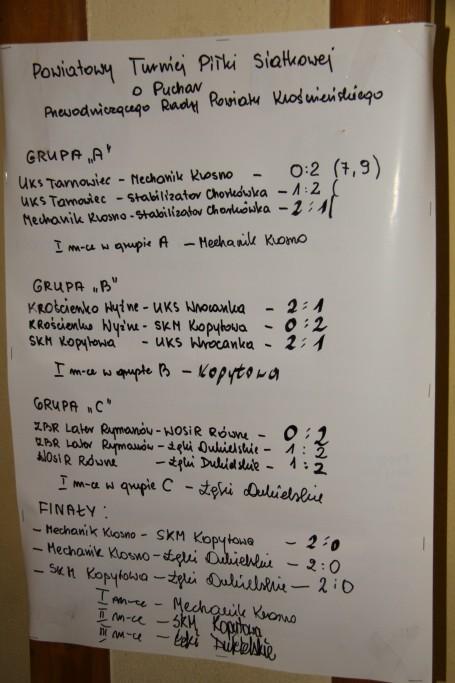 Powiatowy Turniej Piłki Siatkowej
o Puchar
Przewodniczącego Rady Powiatu Krośnieńskiego
GRUPA „A"
UKS Tarnowiec - Mechanik Krosno - 0:2 (7,9)
UKS Tarnowiec - Stabilizator Chorkówka - 1:2
Mechanik Krosno - Stabilizator Chorkówka - 2:1
I m-ce w grupie A - Mechanik Krosno
GRUPA „B"
KROścienko Wyżne - UKS Wrocanka - 2:1
KROścienko Wyżne - SKM Kopytowa - 0:2
SKM Kopytowa - UKS Wrocanka - 2:1
I m-ce w grupie B - Kopytowa
GRUPA „C"
ZBR Lator Rymanów - WOSiR Równe - 0:2
ZBR Lator Rymanów - Łęki Dukielskie - 1:2
WOSiR Równe - Łęki Dukielskie - 1:2
I m-ce w grupie C - Łęki Dukielskie
FINAŁY:
- Mechanik Krosno - SKM Kopytowa - 2:0
- Mechanik Krosno - Łęki Dukielskie - 2:0
- SKM Kopytowa - Łęki Dukielskie - 2:0
I m-ce - Mechanik Krosno
II m-ce - SKM Kopytowa
III m-ce - Łęki Dukielskie